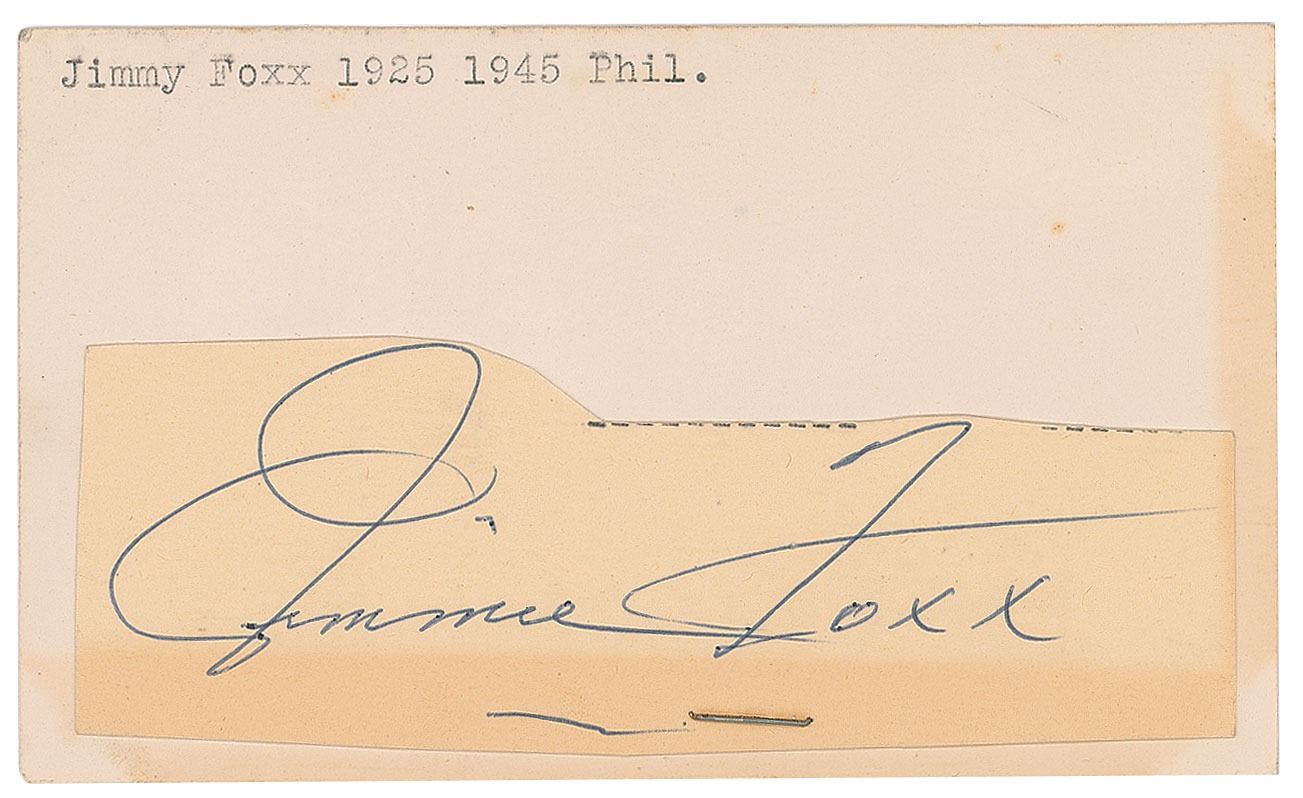 Jimmy Foxx 1925 1945 Phil.
Jimmie Foxx